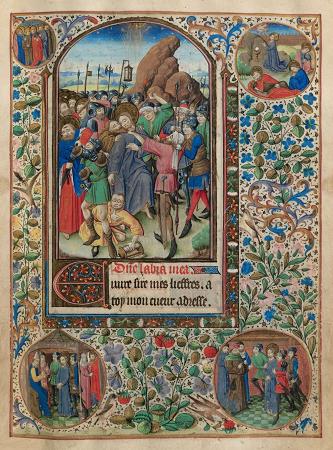 One labia mea
uvire sire mes lieffres. a
toy mon cueur adresse.